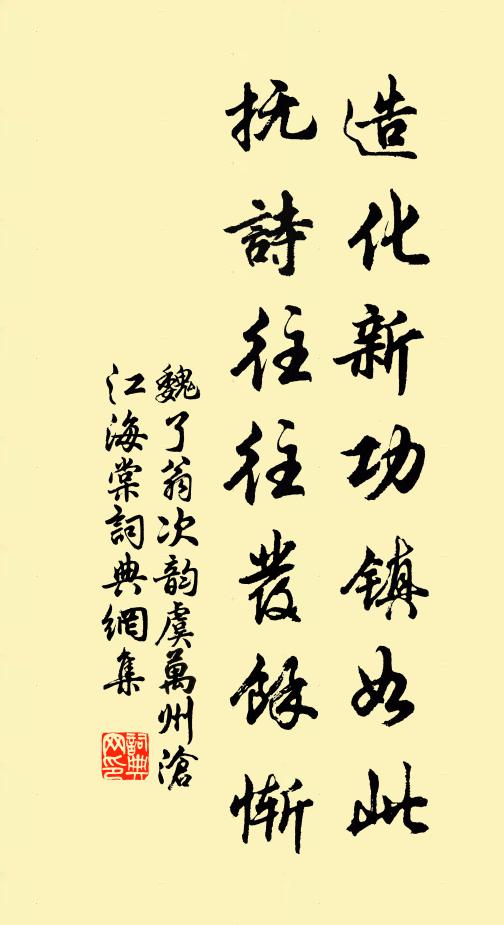 造化新功鎮如此
抚詩往往發餘慚
魏了翁次韵虞萬州滄
江海棠詞典網集
詞典網印